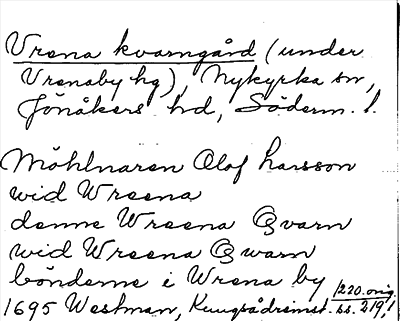 Vrena kvarngård (under
Vrenaby hg), Nykyrka sn,
Jönåkers hd, Söderm. l.
Möhlnaren Olof Larsson
wid Wreena
denne Wreena Qvarn
wid Wreena Qwarn
bönderne i Wrena by
1695 Westman, Kungsådreinst. ss. 219, 1
220. orig.